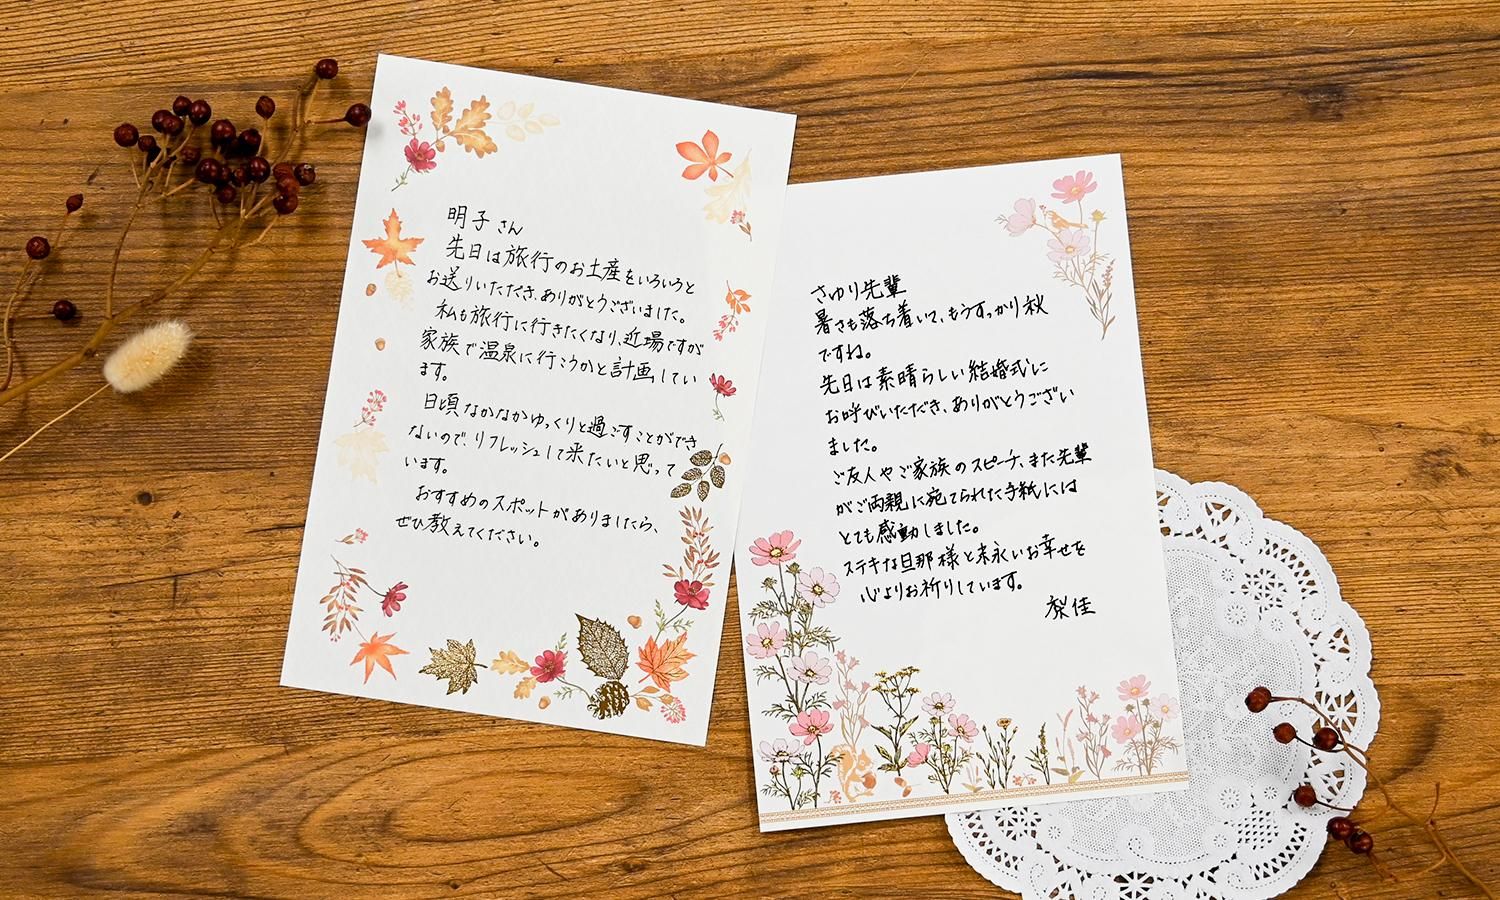 明子さん
先日は旅行のお土産をいろいろと
お送りいただき、ありがとうございました。
私も旅行に行きたくなり、近場ですが
家族で温泉に行こうかと計画してい
ます。
日頃なかなかゆっくりと過ごすことができ
ないので、リフレッシュして来たいと思って
います。
おすすめのスポットがありましたら、
ぜひ教えてください。
さゆり先輩
暑さも落ち着いて、もうすっかり秋
ですね。
先日は素晴らしい結婚式に
お呼びいただき、ありがとうござい
ました。
ご友人やご家族のスピーチ、また先輩
がご両親に宛てられた手紙には
とても感動しました。
ステキな旦那様と末永いお幸せを
心よりお祈りしています。
梨佳